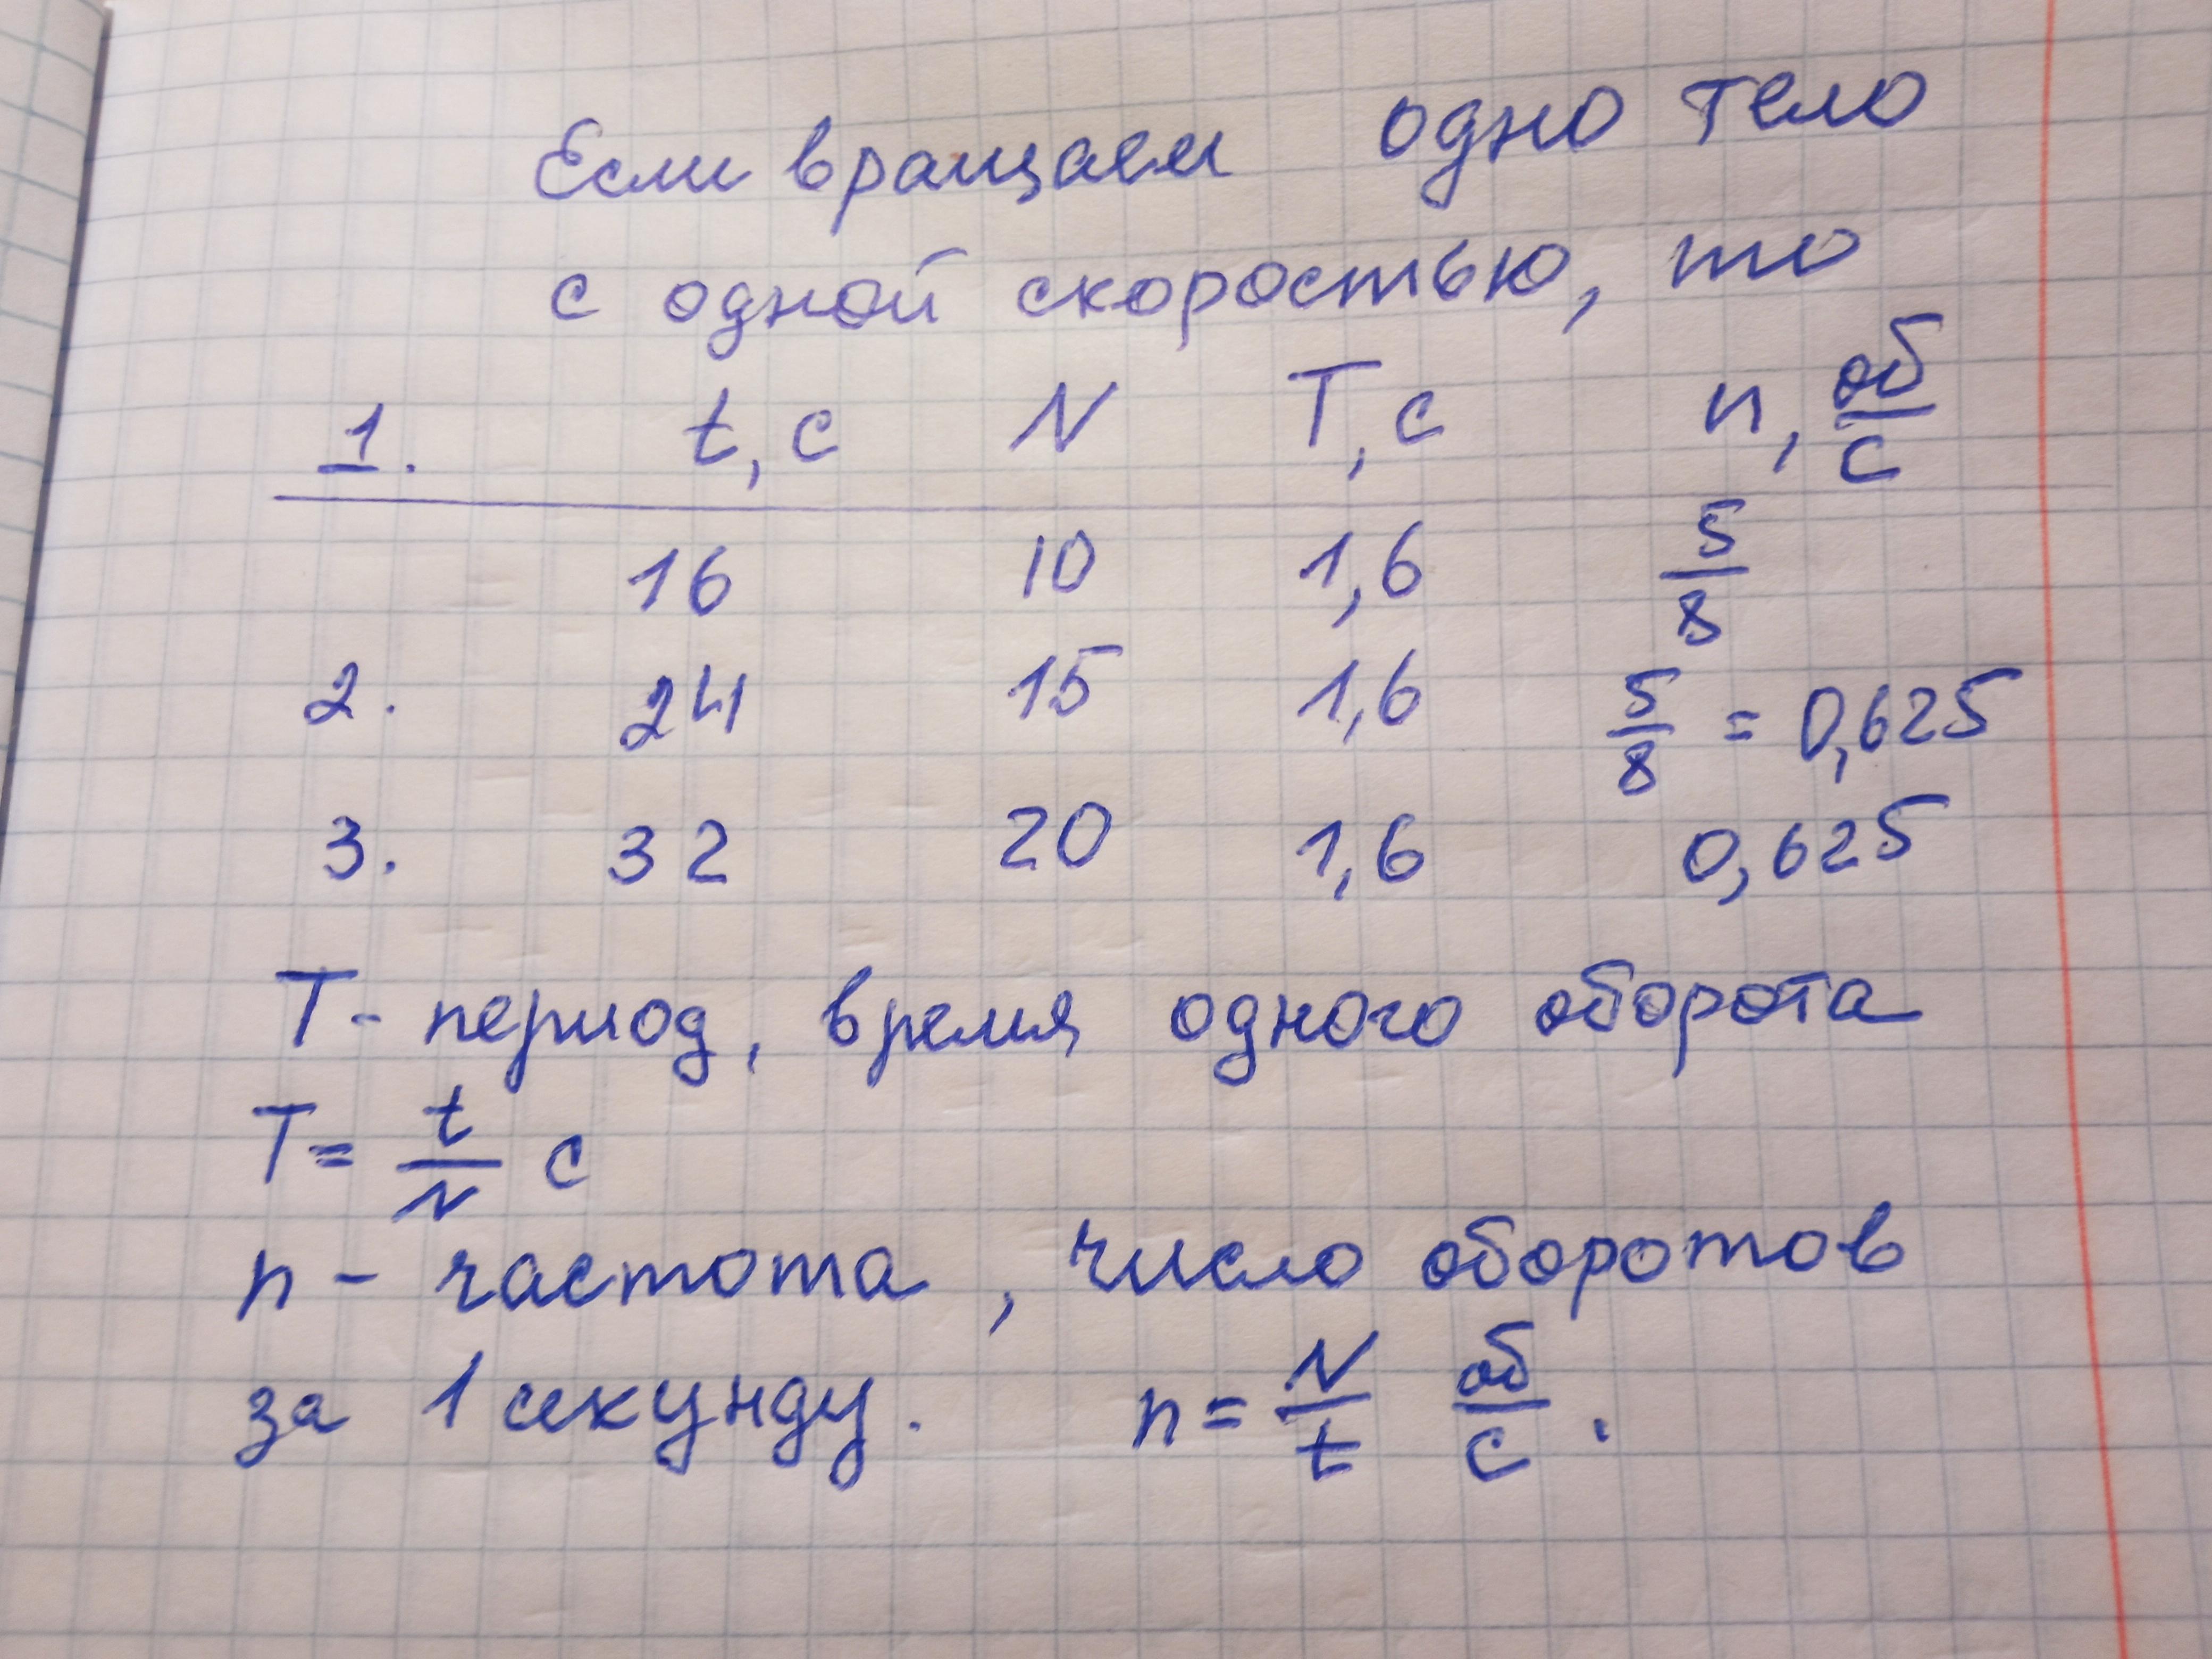 Если вращаем одно тело
с одной скоростью, то
1. t, с N T, с n, об/с
16 10 1,6 5/8
2. 24 15 1,6 5/8 = 0,625
3. 32 20 1,6 0,625
T - период, время одного оборота
T = t/N с
n - частота, число оборотов
за 1 секунду. n = N/t об/с.